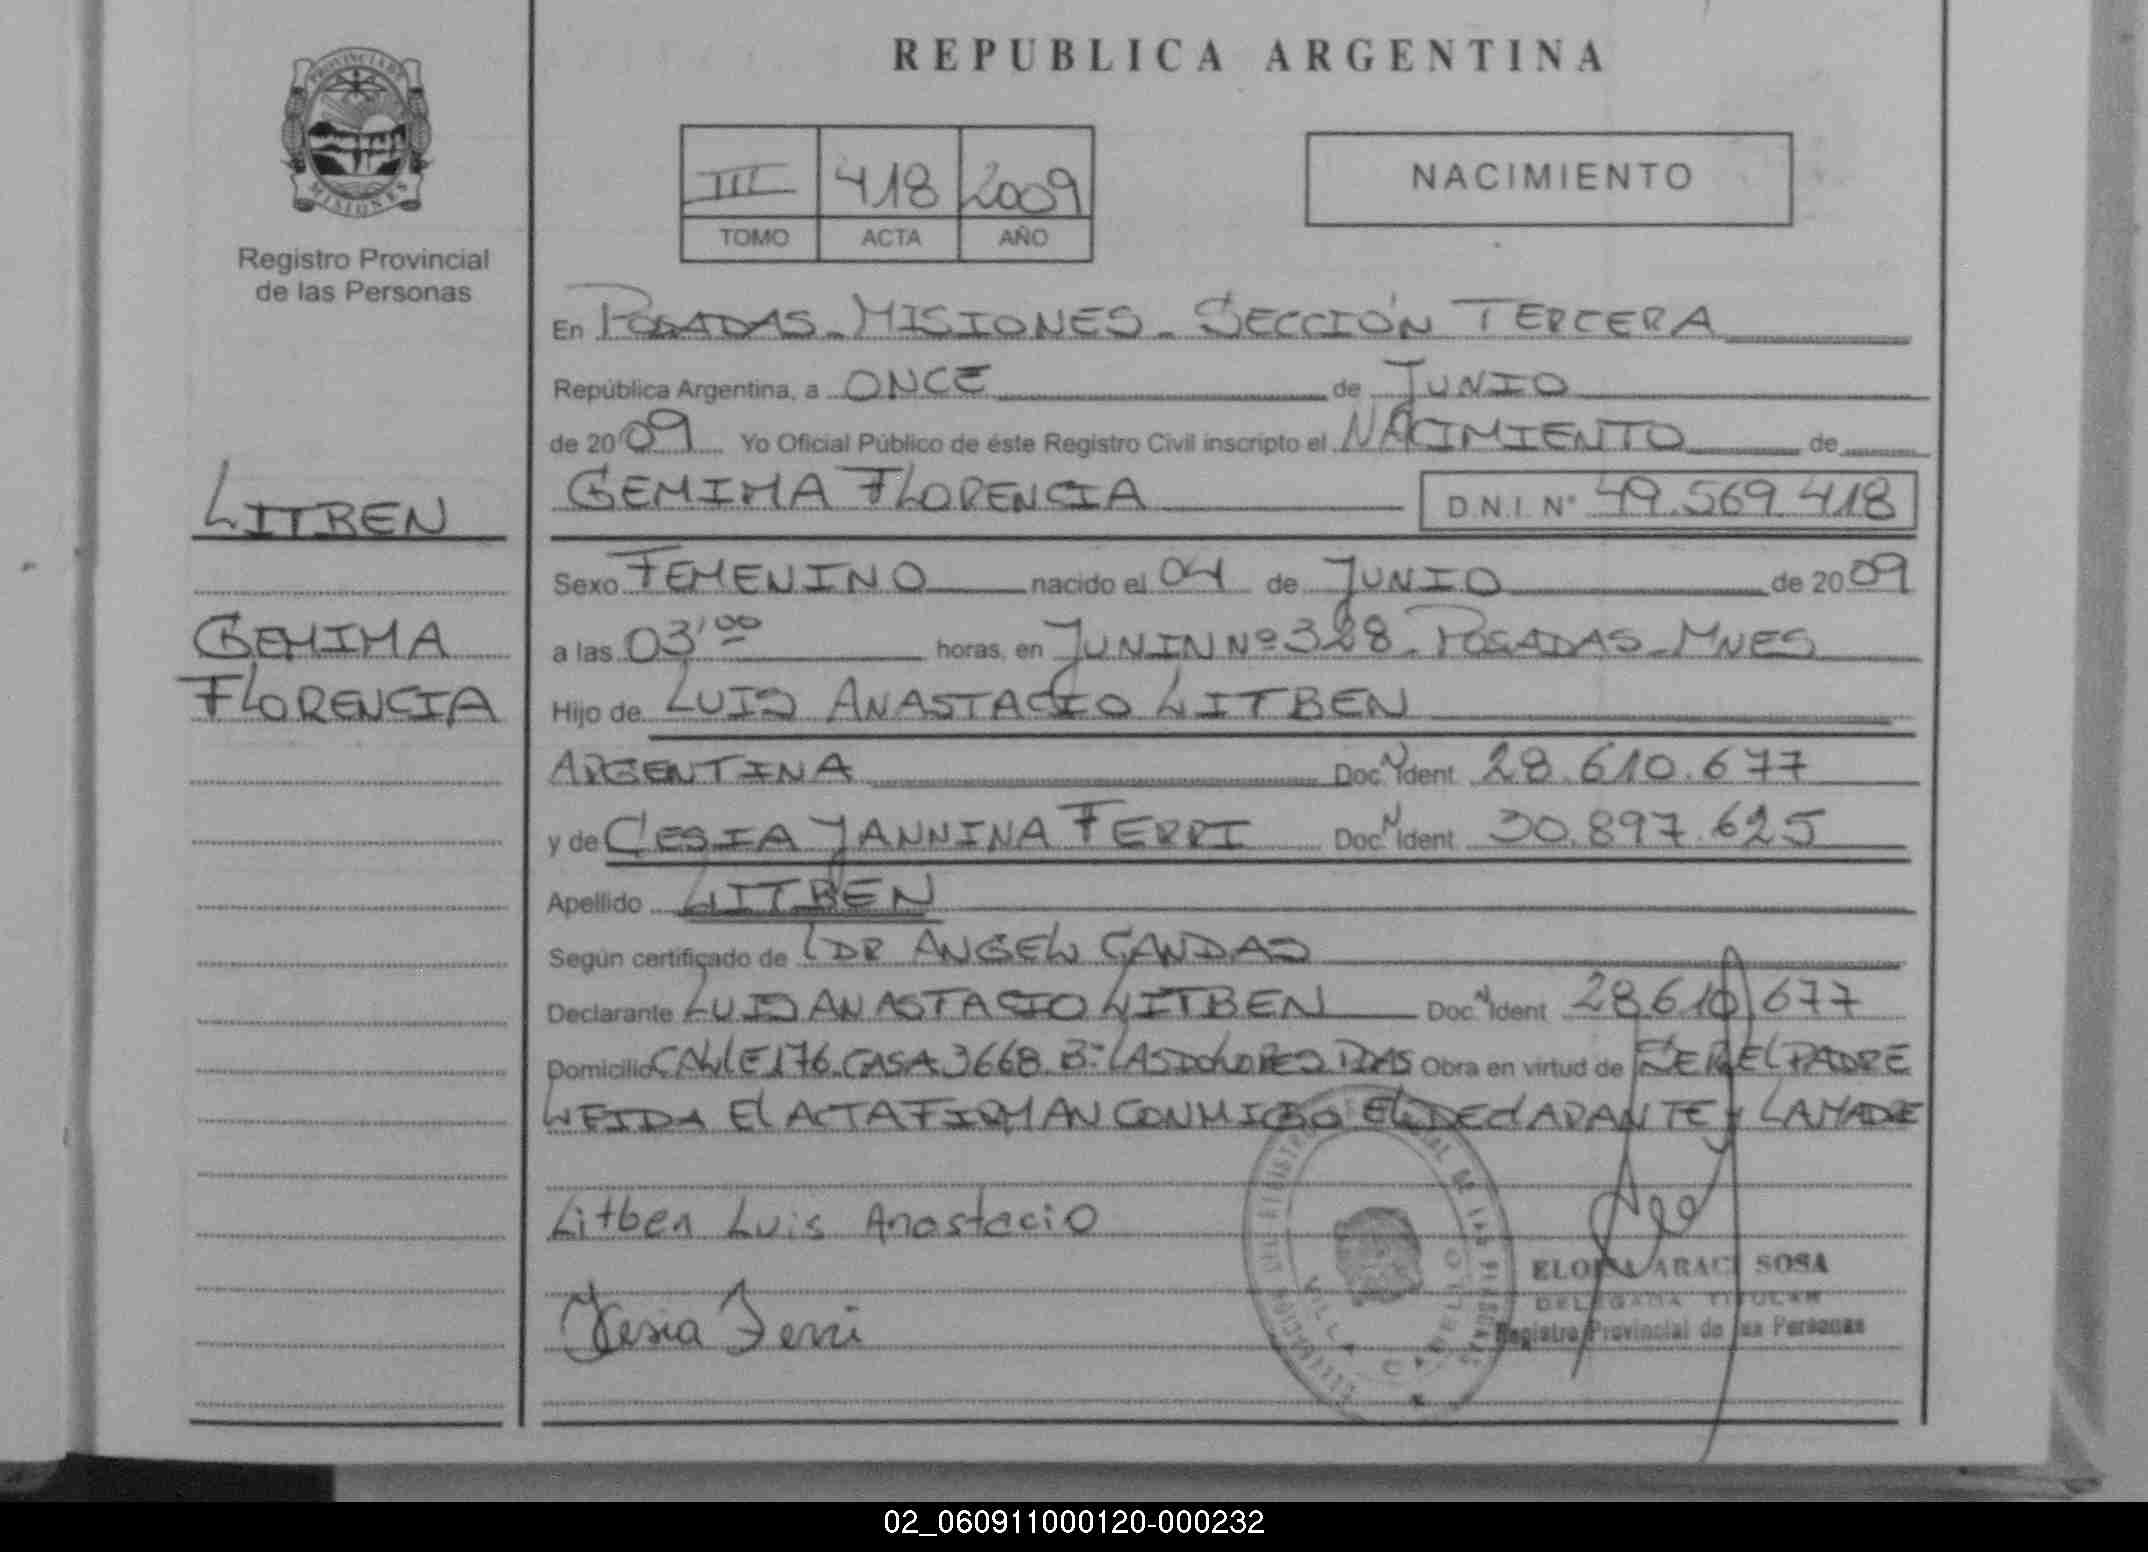 REPUBLICA ARGENTINA
PROVINCIA DE
MISIONES
Registro Provincial
de las Personas
III 418 2009
TOMO ACTA AÑO
NACIMIENTO
En POSADAS - MISIONES - SECCIÓN TERCERA
República Argentina, a ONCE de JUNIO
de 2009 Yo Oficial Público de éste Registro Civil inscripto el NACIMIENTO de
GEMIMA FLORENCIA D.N.I. Nº 49.569.418
LITBEN
GEMIMA
FLORENCIA
Sexo FEMENINO nacido el 04 de JUNIO de 2009
a las 03'00 horas, en JUNIN Nº 328 - POSADAS - MNES
Hijo de LUIS ANASTACIO LITBEN
ARGENTINA Doc. N Ident. 28.610.677
y de CESIA YANNINA FERRI Doc. N Ident. 30.897.625
Apellido LITBEN
Según certificado de DR ANGEL CANDAS
Declarante LUIS ANASTACIO LITBEN Doc. N Ident 28.610.677
Domicilio CALLE 176 CASA 3668 Bº LAS DOLORES PDAS Obra en virtud de SER EL PADRE
LEIDA El ACTA FIRMAN CONMIGO EL DEClARANTE y LA MADRE
Litben Luis Anastacio
Ferri
REGISTRO PROVINCIAL DE LAS PERSONAS
VILLA CABELLO
ARACI SOSA
DELEGADA TITULAR
Registro Provincial de las Personas
02_060911000120-000232